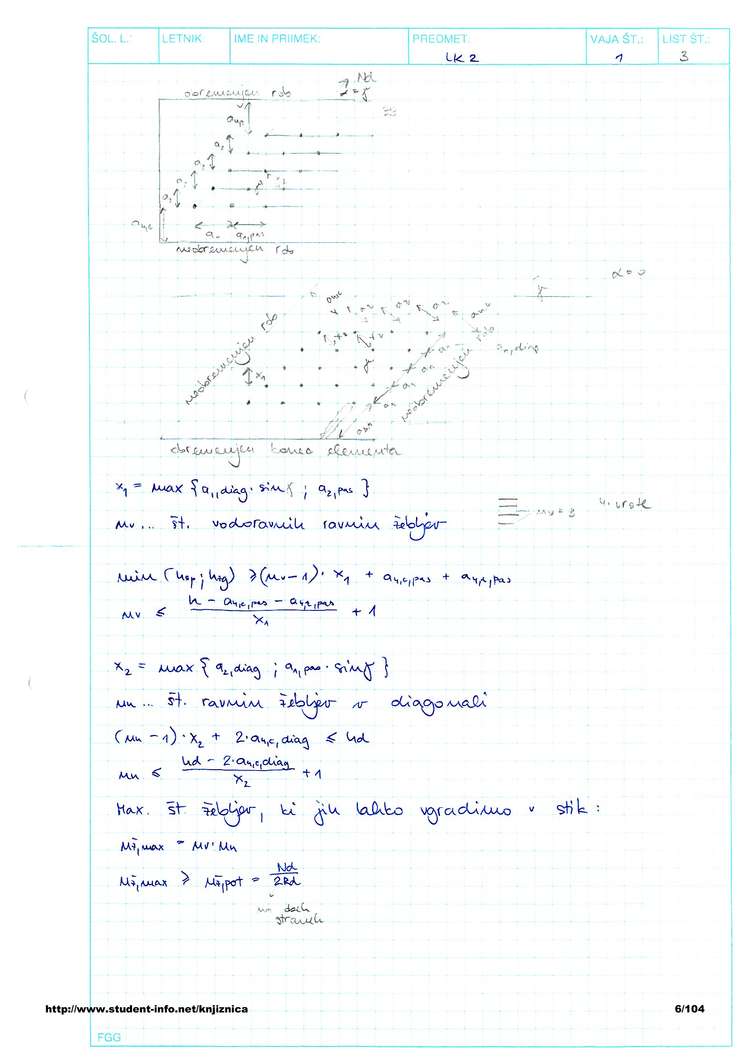 ŠOL. L.: LETNIK IME IN PRIIMEK: PREDMET: VAJA ŠT.: LIST ŠT.:
LK 2 1 3
Nd
α = γ
obremenjen rob
a4,c
a1 a1,pas
neobremenjen rob
α = 0
γ
neobremenjen rob
neobremenjen rob
a1,diag
x1
obremenjen konec elementa
x1 = max {a1,diag · sinγ ; a2,pas}
nv ... št. vodoravnih ravnin žebljev
nv = 3
4. vrste
min (hsp ; hzg) ≥ (nv - 1) · x1 + a4,c,pas + a4,t,pas
nv ≤ (h - a4,c,pas - a4,t,pas) / x1 + 1
x2 = max {a2,diag ; a1,pas · sinγ}
nn ... št. ravnin žebljev v diagonali
(nn - 1) · x2 + 2·a4,c,diag ≤ hd
nn ≤ (hd - 2·a4,c,diag) / x2 + 1
Max. št. žebljev, ki jih lahko vgradimo v stik :
nž,max = nv · nn
nž,max ≥ nž,pot = Nd / 2Rd
na dveh
straneh
http://www.student-info.net/knjiznica 6/104
FGG